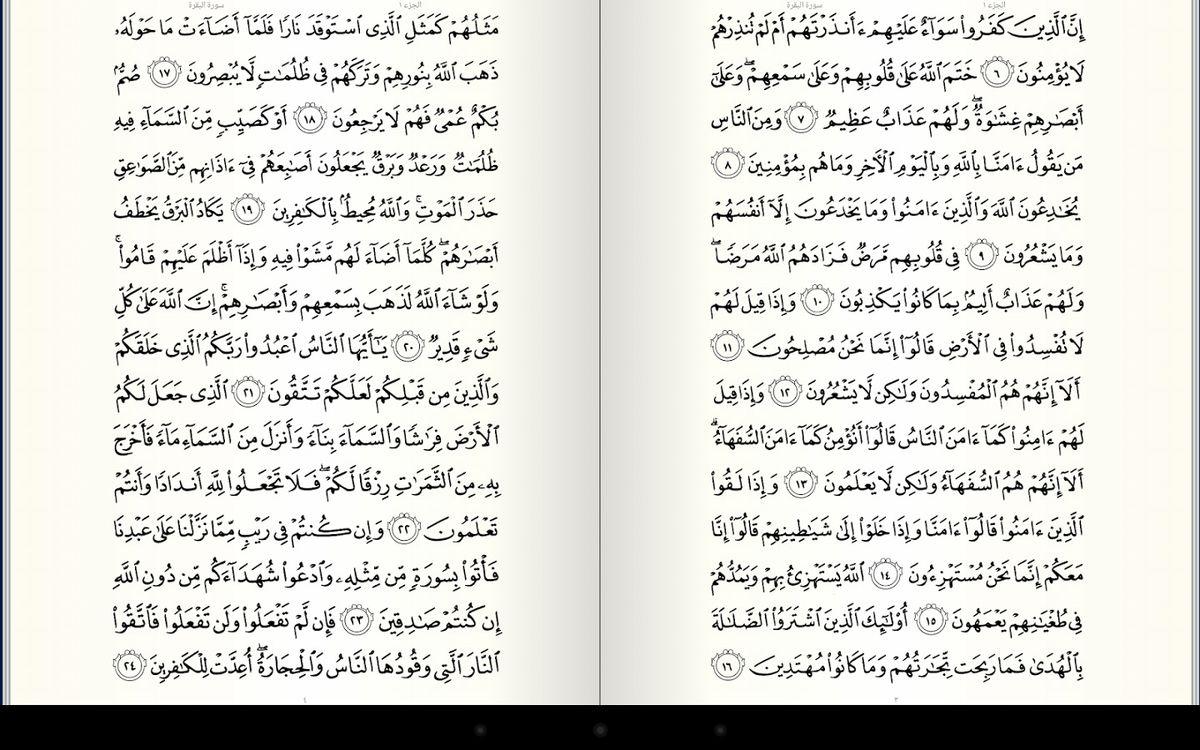 الجزء ١
سورة البقرة
إِنَّ ٱلَّذِينَ كَفَرُوا۟ سَوَآءٌ عَلَيْهِمْ ءَأَنذَرْتَهُمْ أَمْ لَمْ تُنذِرْهُمْ
لَا يُؤْمِنُونَ ٦ خَتَمَ ٱللَّهُ عَلَىٰ قُلُوبِهِمْ وَعَلَىٰ سَمْعِهِمْ ۖ وَعَلَىٰٓ
أَبْصَٰرِهِمْ غِشَٰوَةٌ ۖ وَلَهُمْ عَذَابٌ عَظِيمٌ ٧ وَمِنَ ٱلنَّاسِ
مَن يَقُولُ ءَامَنَّا بِٱللَّهِ وَبِٱلْيَوْمِ ٱلْءَاخِرِ وَمَا هُم بِمُؤْمِنِينَ ٨
يُخَٰدِعُونَ ٱللَّهَ وَٱلَّذِينَ ءَامَنُوا۟ وَمَا يَخْدَعُونَ إِلَّآ أَنفُسَهُمْ
وَمَا يَشْعُرُونَ ٩ فِى قُلُوبِهِم مَّرَضٌ فَزَادَهُمُ ٱللَّهُ مَرَضًا ۖ
وَلَهُمْ عَذَابٌ أَلِيمٌۢ بِمَا كَانُوا۟ يَكْذِبُونَ ١٠ وَإِذَا قِيلَ لَهُمْ
لَا تُفْسِدُوا۟ فِى ٱلْأَرْضِ قَالُوٓا۟ إِنَّمَا نَحْنُ مُصْلِحُونَ ١١
أَلَآ إِنَّهُمْ هُمُ ٱلْمُفْسِدُونَ وَلَٰكِن لَّا يَشْعُرُونَ ١٢ وَإِذَا قِيلَ
لَهُمْ ءَامِنُوا۟ كَمَآ ءَامَنَ ٱلنَّاسُ قَالُوٓا۟ أَنُؤْمِنُ كَمَآ ءَامَنَ ٱلسُّفَهَآءُ ۗ
أَلَآ إِنَّهُمْ هُمُ ٱلسُّفَهَآءُ وَلَٰكِن لَّا يَعْلَمُونَ ١٣ وَإِذَا لَقُوا۟
ٱلَّذِينَ ءَامَنُوا۟ قَالُوٓا۟ ءَامَنَّا وَإِذَا خَلَوْا۟ إِلَىٰ شَيَٰطِينِهِمْ قَالُوٓا۟ إِنَّا
مَعَكُمْ إِنَّمَا نَحْنُ مُسْتَهْزِءُونَ ١٤ ٱللَّهُ يَسْتَهْزِئُ بِهِمْ وَيَمُدُّهُمْ
فِى طُغْيَٰنِهِمْ يَعْمَهُونَ ١٥ أُو۟لَٰٓئِكَ ٱلَّذِينَ ٱشْتَرَوُا۟ ٱلضَّلَٰلَةَ
بِٱلْهُدَىٰ فَمَا رَبِحَت تِّجَٰرَتُهُمْ وَمَا كَانُوا۟ مُهْتَدِينَ ١٦
٣
الجزء ١
سورة البقرة
مَثَلُهُمْ كَمَثَلِ ٱلَّذِى ٱسْتَوْقَدَ نَارًا فَلَمَّآ أَضَآءَتْ مَا حَوْلَهُۥ
ذَهَبَ ٱللَّهُ بِنُورِهِمْ وَتَرَكَهُمْ فِى ظُلُمَٰتٍ لَّا يُبْصِرُونَ ١٧ صُمٌّۢ
بُكْمٌ عُمْىٌ فَهُمْ لَا يَرْجِعُونَ ١٨ أَوْ كَصَيِّبٍ مِّنَ ٱلسَّمَآءِ فِيهِ
ظُلُمَٰتٌ وَرَعْدٌ وَبَرْقٌ يَجْعَلُونَ أَصَٰبِعَهُمْ فِىٓ ءَاذَانِهِم مِّنَ ٱلصَّوَٰعِقِ
حَذَرَ ٱلْمَوْتِ ۚ وَٱللَّهُ مُحِيطٌۢ بِٱلْكَٰفِرِينَ ١٩ يَكَادُ ٱلْبَرْقُ يَخْطَفُ
أَبْصَٰرَهُمْ ۖ كُلَّمَآ أَضَآءَ لَهُم مَّشَوْا۟ فِيهِ وَإِذَآ أَظْلَمَ عَلَيْهِمْ قَامُوا۟ ۚ
وَلَوْ شَآءَ ٱللَّهُ لَذَهَبَ بِسَمْعِهِمْ وَأَبْصَٰرِهِمْ ۚ إِنَّ ٱللَّهَ عَلَىٰ كُلِّ
شَىْءٍ قَدِيرٌ ٢٠ يَٰٓأَيُّهَا ٱلنَّاسُ ٱعْبُدُوا۟ رَبَّكُمُ ٱلَّذِى خَلَقَكُمْ
وَٱلَّذِينَ مِن قَبْلِكُمْ لَعَلَّكُمْ تَتَّقُونَ ٢١ ٱلَّذِى جَعَلَ لَكُمُ
ٱلْأَرْضَ فِرَٰشًا وَٱلسَّمَآءَ بِنَآءً وَأَنزَلَ مِنَ ٱلسَّمَآءِ مَآءً فَأَخْرَجَ
بِهِۦ مِنَ ٱلثَّمَرَٰتِ رِزْقًا لَّكُمْ ۖ فَلَا تَجْعَلُوا۟ لِلَّهِ أَندَادًا وَأَنتُمْ
تَعْلَمُونَ ٢٢ وَإِن كُنتُمْ فِى رَيْبٍ مِّمَّا نَزَّلْنَا عَلَىٰ عَبْدِنَا
فَأْتُوا۟ بِسُورَةٍ مِّن مِّثْلِهِۦ وَٱدْعُوا۟ شُهَدَآءَكُم مِّن دُونِ ٱللَّهِ
إِن كُنتُمْ صَٰدِقِينَ ٢٣ فَإِن لَّمْ تَفْعَلُوا۟ وَلَن تَفْعَلُوا۟ فَٱتَّقُوا۟
ٱلنَّارَ ٱلَّتِى وَقُودُهَا ٱلنَّاسُ وَٱلْحِجَارَةُ ۖ أُعِدَّتْ لِلْكَٰفِرِينَ ٢٤
٤